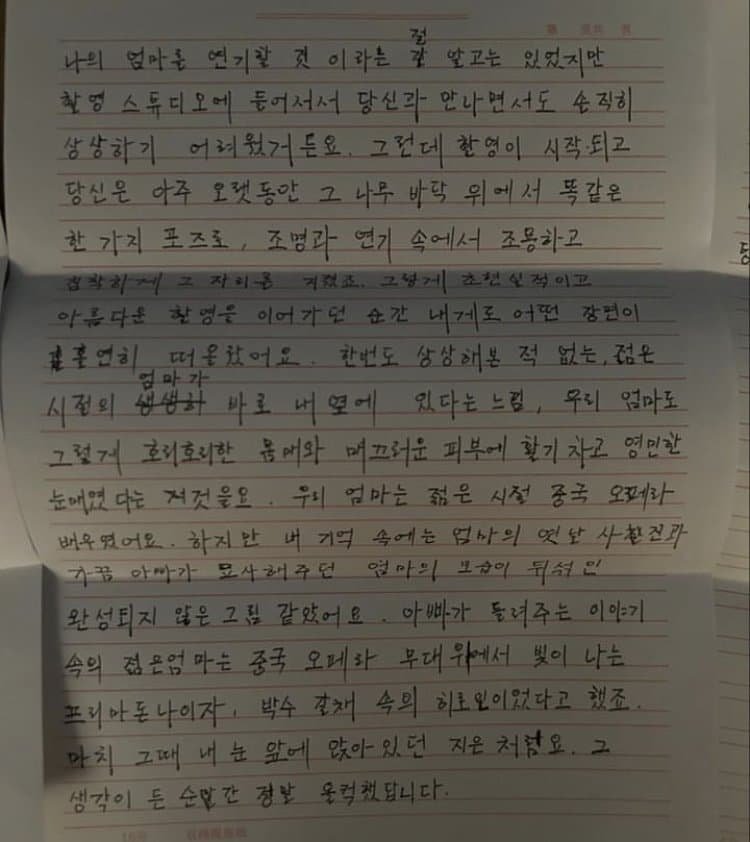 나의 엄마를 연기할 것 이라는 잘 알고는 있었지만
촬영 스튜디오에 들어서서 당신과 만나면서도 솔직히
상상하기 어려웠거든요. 그런데 촬영이 시작되고
당신은 아주 오랫동안 그 나무 바닥 위에서 똑같은
한 가지 포즈로, 조명과 연기 속에서 조용하고
침착하게 그 자리를 지켰죠. 그렇게 초현실적이고
아름다운 촬영을 이어가던 순간 내게로 어떤 장면이
홀연히 떠올랐어요. 한번도 상상해본 적 없는, 젊은
시절의 엄마가 바로 내 옆에 있다는 느낌, 우리 엄마도
그렇게 호리호리한 몸매와 매끄러운 피부에 활기차고 영민한
눈매였다는 것을요. 우리 엄마는 젊은 시절 중국 오페라
배우였어요. 하지만 내 기억 속에는 엄마의 옛날 사진과
가끔 아빠가 묘사해주던 엄마의 모습이 뒤섞인
완성되지 않은 그림 같았어요. 아빠가 들려주는 이야기
속의 젊은엄마는 중국 오페라 무대 위에서 빛이 나는
프리마돈나이자, 박수 갈채 속의 히로인이었다고 했죠.
마치 그때 내 눈 앞에 앉아있던 지은 처럼요. 그
생각이 든 순간 정말 울컥했답니다.